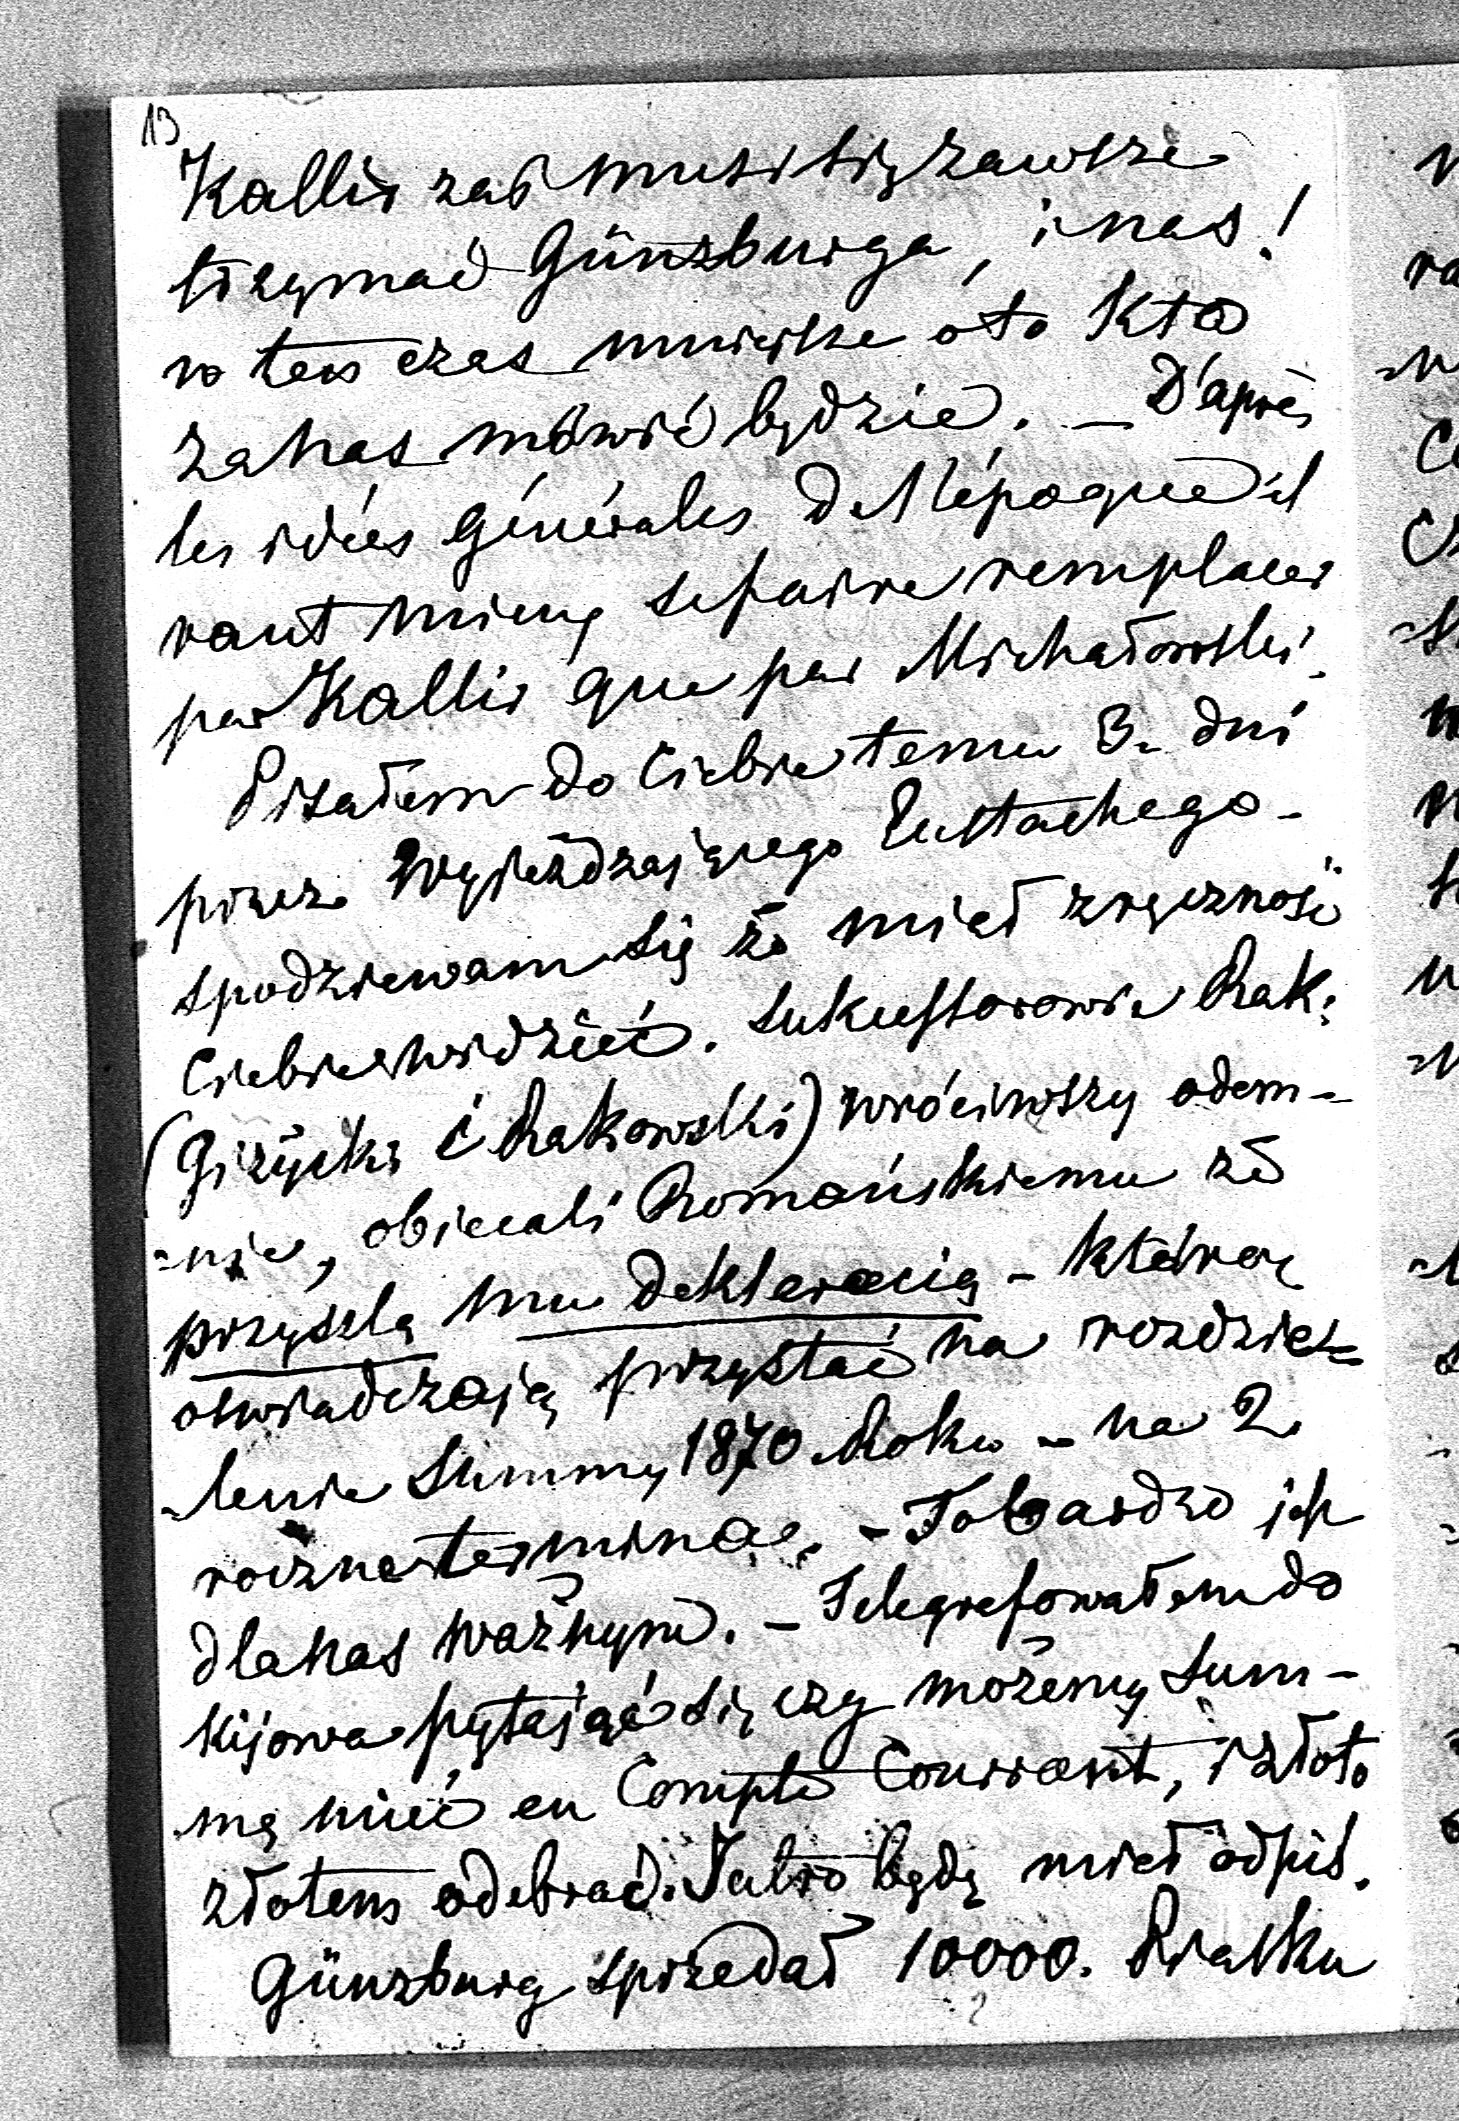 13
Kallir zaś musi się zawsze
trzymać Günzburga, i nas!
w ten czas mniejsze o to kto
za nas mówić będzie. – D'après
les idées générales de l'époque il
vaut mieux se faire remplacer
par Kallir que par Michałowski.
Pisałem do Ciebie temu 3. dni
przez wyjeżdzającego Eustachego –
spodziewam się że miał zręczność
Ciebie widzieć. Sukcessorowie Rak:
(Giżycki i Rakowski) wróciwszy odem-
-nie, obiecali Romańskiemu że
przyszlą mu deklaracią – którą
oswiadczają przystać na rozdzie-
-lenie Summy 1870 Roku – na 2.
roczne termina. – To bardzo jest
dla nas ważnym. – Telegrafowałem do
Kijowa pytając się czy możemy Sum-
-mę mieć en Compte Courrant, i złoto
złotem odebrać. Jutro będę miał odpis.
Günzburg sprzedał 10000. Piasku